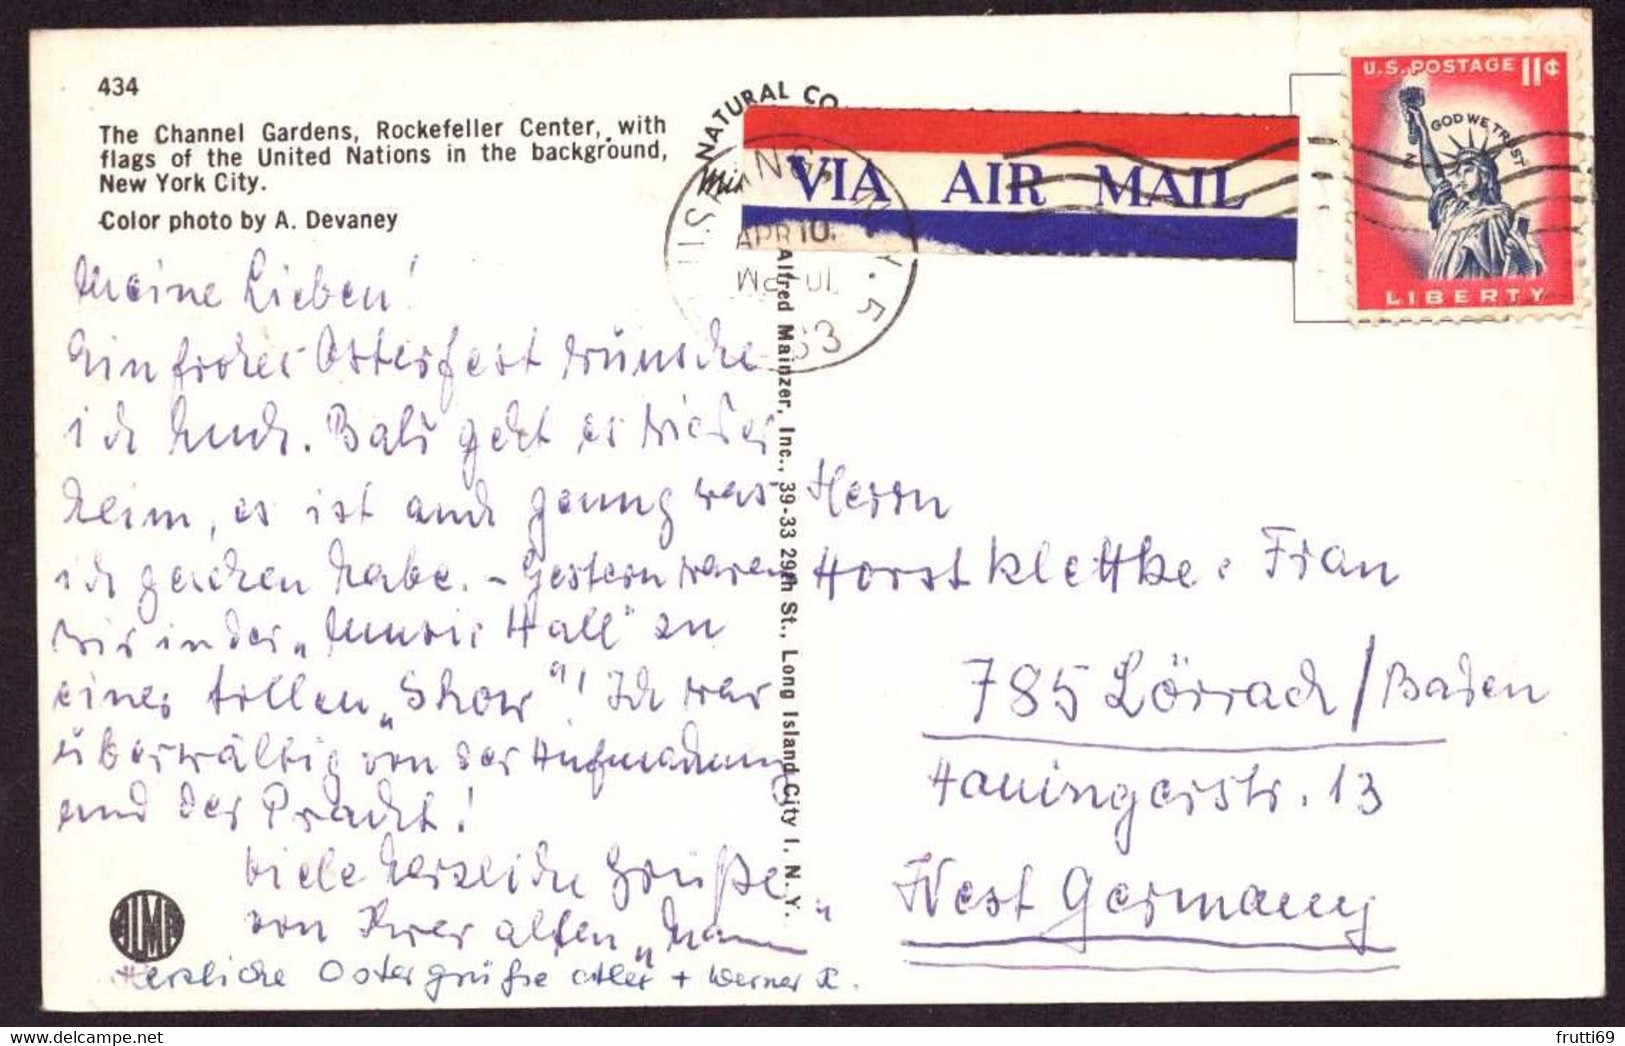 434
The Channel Gardens, Rockefeller Center, with
flags of the United Nations in the background,
New York City.
Color photo by A. Devaney
Meine Lieben!
Ein frohes Osterfest wünsche
ich Euch. Bald geht es wieder
heim, es ist auch genug was
ich gesehen habe. – Gestern waren
wir in der „Music Hall" zu
einer tollen „Show"! Ich war
überwältigt von der Aufmachung
und der Pracht!
Viele herzliche Grüße
von Eurer alten
Herzliche Ostergrüße + Werner
ALMA
NATURAL CO
Alfred Mainzer, Inc., 39-33 29th St., Long Island City 1, N. Y.
APR 10
63
VIA AIR MAIL
U.S. POSTAGE 11¢
IN GOD WE TRUST
LIBERTY
Herrn
Horst Klettke u. Frau
785 Lörrach/Baden
Hauingerstr. 13
West Germany
frutti69